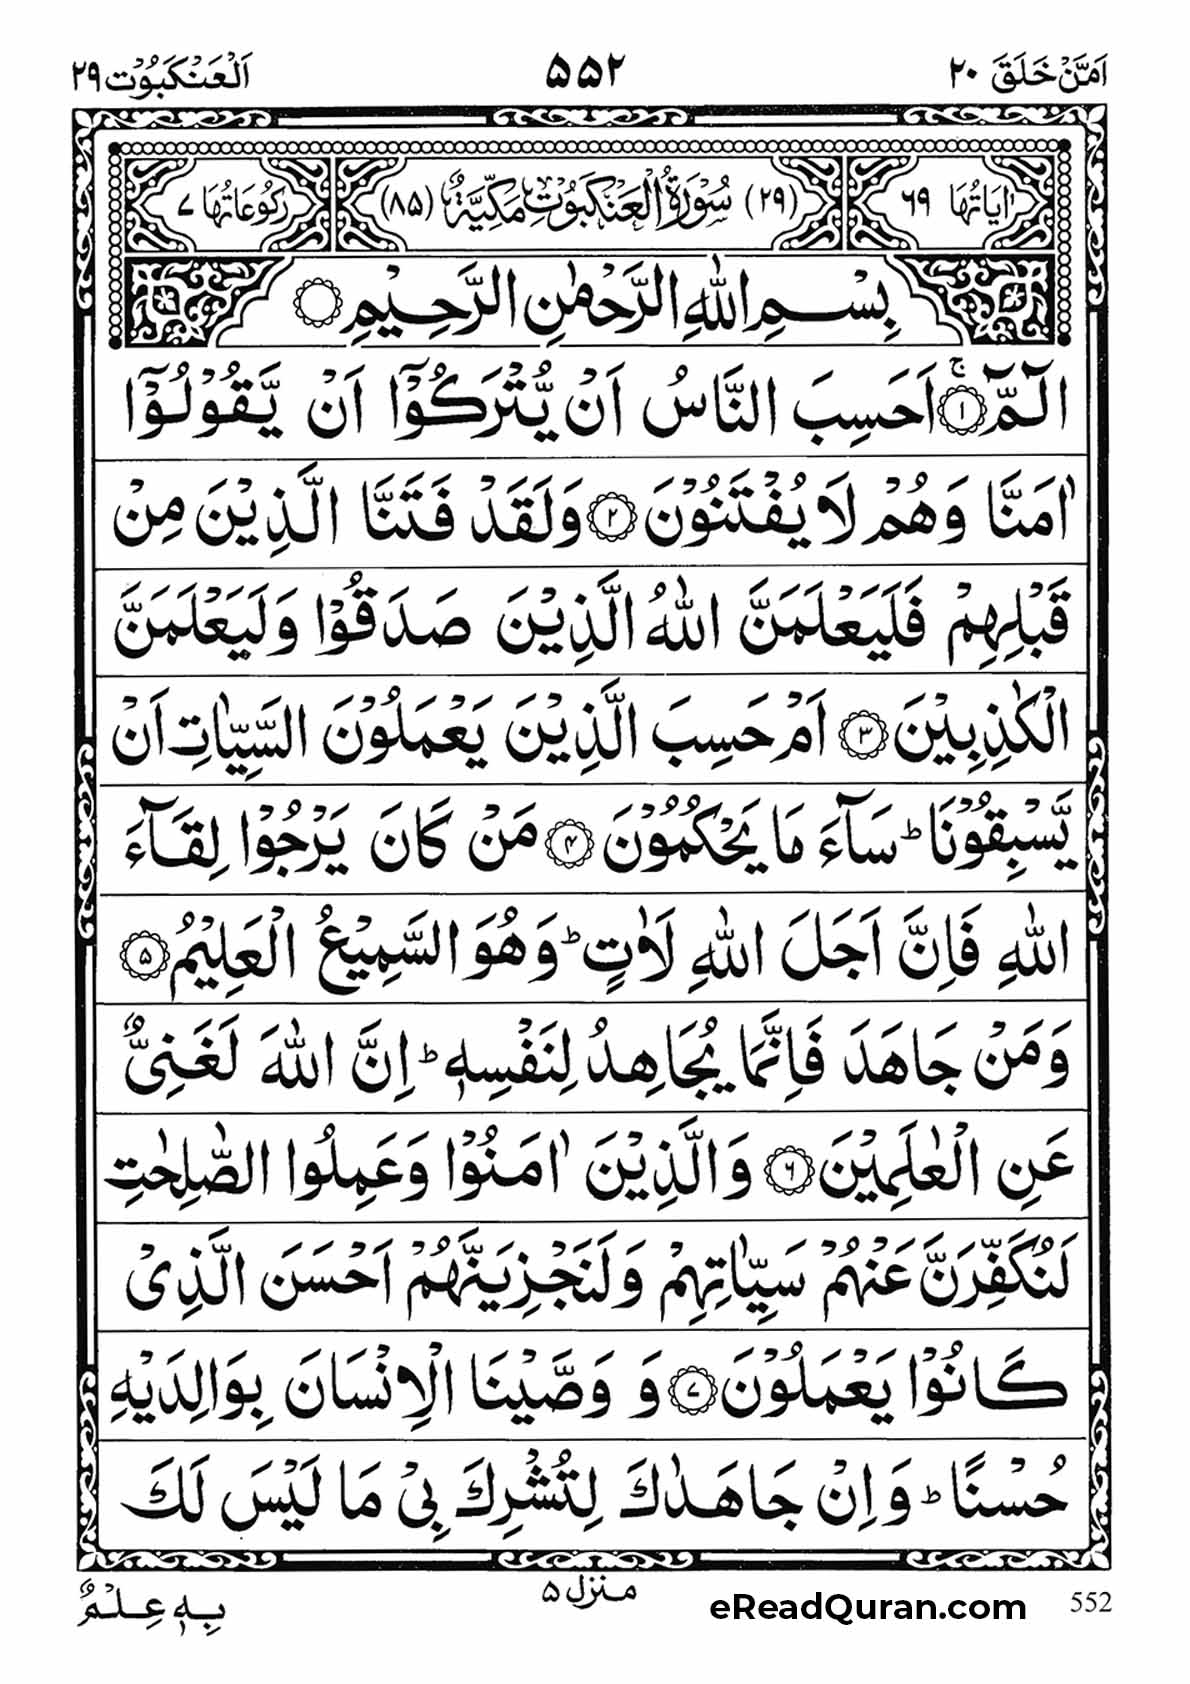 اَمَّنْ خَلَقَ ۲۰ ۵۵۲ اَلْعَنْكَبُوْت ۲۹
اٰيَاتُهَا ۶۹ (۲۹) سُوْرَةُ الْعَنْكَبُوْتِ مَكِّيَّةٌ (۸۵) رُكُوْعَاتُهَا ۷
بِسْمِ اللّٰهِ الرَّحْمٰنِ الرَّحِيْمِ
الٓمّٓ ۚ ﴿۱﴾ اَحَسِبَ النَّاسُ اَنْ يُّتْرَكُوْۤا اَنْ يَّقُوْلُوْۤا
اٰمَنَّا وَهُمْ لَا يُفْتَنُوْنَ ﴿۲﴾ وَلَقَدْ فَتَنَّا الَّذِيْنَ مِنْ
قَبْلِهِمْ فَلَيَعْلَمَنَّ اللّٰهُ الَّذِيْنَ صَدَقُوْا وَلَيَعْلَمَنَّ
الْكٰذِبِيْنَ ﴿۳﴾ اَمْ حَسِبَ الَّذِيْنَ يَعْمَلُوْنَ السَّيِّاٰتِ اَنْ
يَّسْبِقُوْنَا ؕ سَآءَ مَا يَحْكُمُوْنَ ﴿۴﴾ مَنْ كَانَ يَرْجُوْا لِقَآءَ
اللّٰهِ فَاِنَّ اَجَلَ اللّٰهِ لَاٰتٍ ؕ وَهُوَ السَّمِيْعُ الْعَلِيْمُ ﴿۵﴾
وَمَنْ جَاهَدَ فَاِنَّمَا يُجَاهِدُ لِنَفْسِهٖ ؕ اِنَّ اللّٰهَ لَغَنِىٌّ
عَنِ الْعٰلَمِيْنَ ﴿۶﴾ وَالَّذِيْنَ اٰمَنُوْا وَعَمِلُوا الصّٰلِحٰتِ
لَنُكَفِّرَنَّ عَنْهُمْ سَيِّاٰتِهِمْ وَلَنَجْزِيَنَّهُمْ اَحْسَنَ الَّذِىْ
كَانُوْا يَعْمَلُوْنَ ﴿۷﴾ وَ وَصَّيْنَا الْاِنْسَانَ بِوَالِدَيْهِ
حُسْنًا ؕ وَاِنْ جَاهَدٰكَ لِتُشْرِكَ بِىْ مَا لَيْسَ لَكَ
بِهٖ عِلْمٌ منزل ۵ eReadQuran.com 552